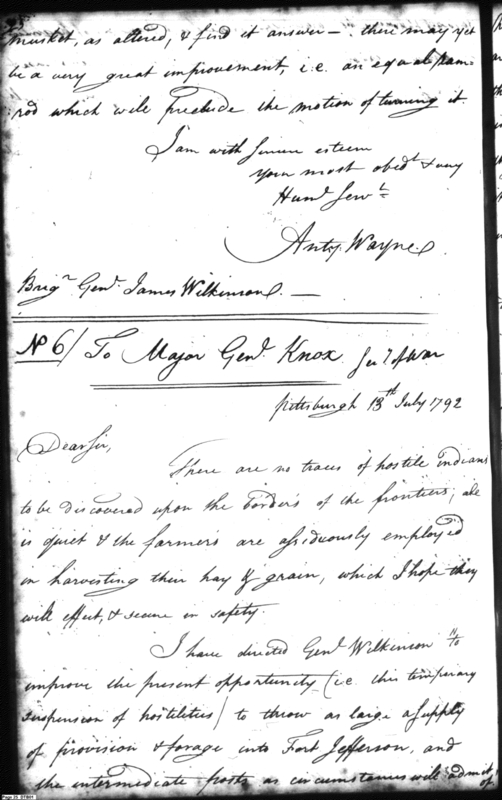 musket, as altered, & find it answer — there may yet
be a very great improvement, i.e. an equal ram=
rod which will preclude the motion of turning it.
I am with sincere esteem
your most obedt & very
Humb Servt
Anty Wayne
Brigr Genl James Wilkinson. —
No 6/ To Major Genl Knox Secy of War
Pittsburgh 13th July 1792
Dear Sir,
There are no traces of hostile Indians
to be discovered upon the borders of the frontiers, all
is quiet & the farmers are assiduously employed
in harvesting their hay & grain, which I hope they
will effect, & secure in safety.
I have directed Genl Wilkinson to
improve the present opportunity (i.e. this temporary
suspension of hostilities) to throw as large a supply
of provision & forage into Fort Jefferson, and
the intermediate posts as circumstances will admit of